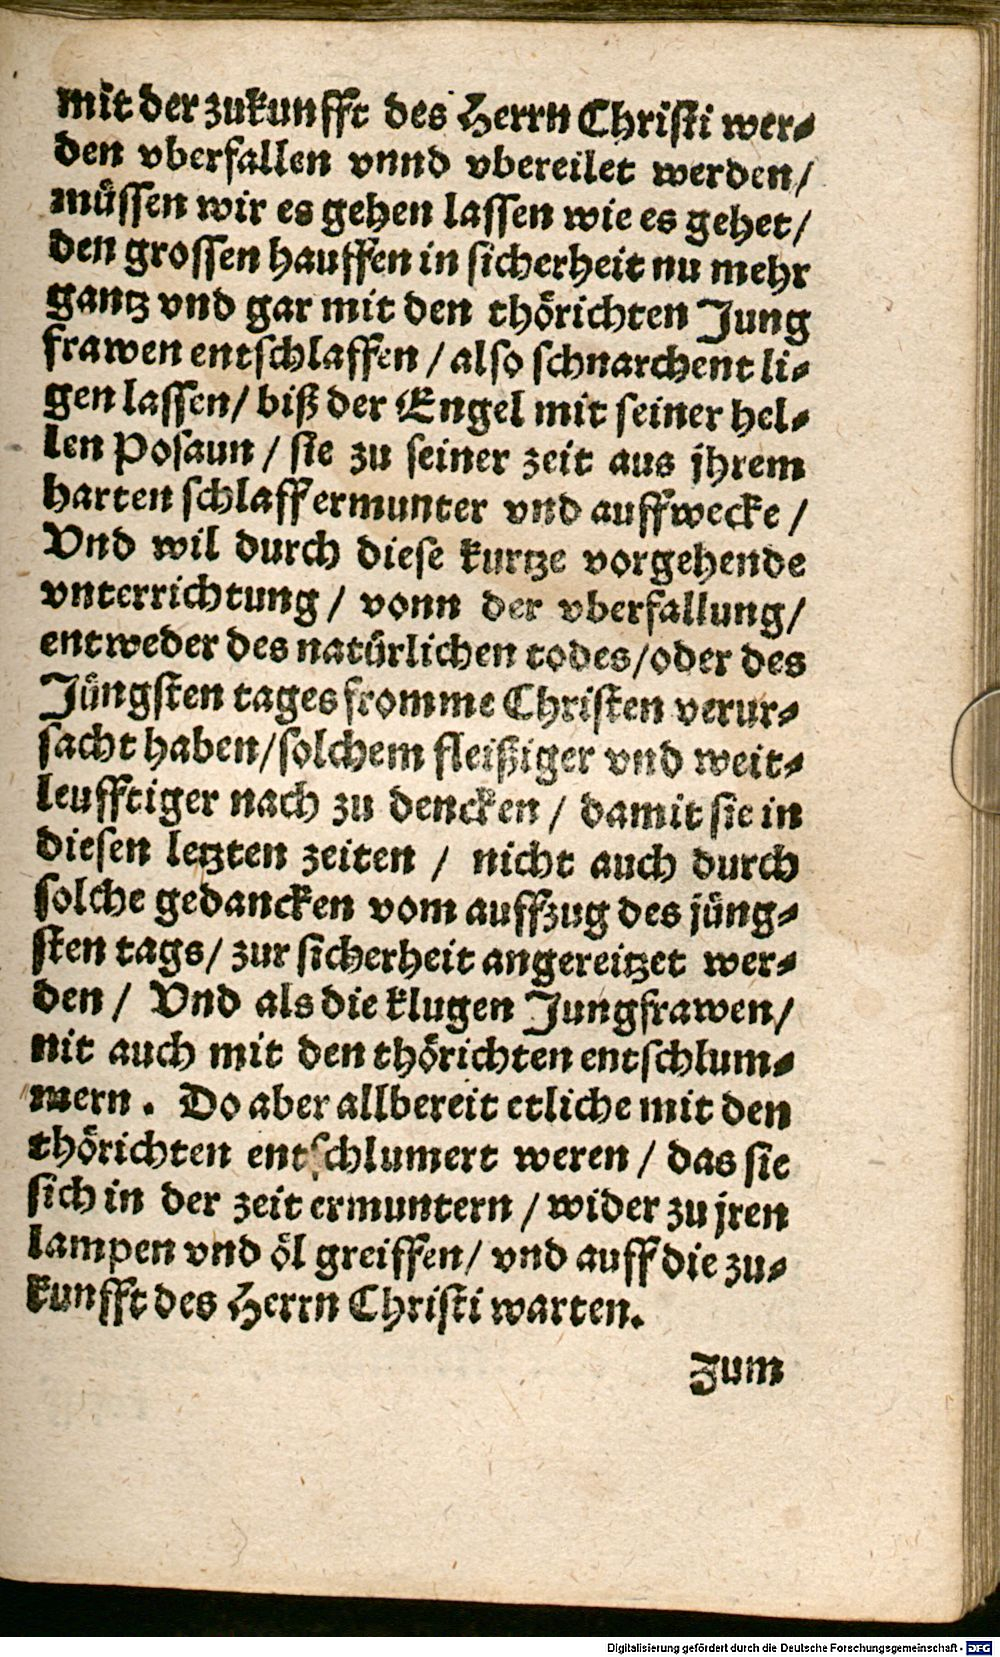 mit der zukunfft des Herrn Christi wer-
den vberfallen vnnd vbereilet werden/
müssen wir es gehen lassen wie es gehet/
den grossen hauffen in sicherheit nu mehr
gantz vnd gar mit den thörichten Jung
frawen entschlaffen / also schnarchent li-
gen lassen/ biß der Engel mit seiner hel-
len Posaun / sie zu seiner zeit aus jhrem
harten schlaff ermunter vnd auffwecke /
Vnd wil durch diese kurtze vorgehende
vnterrichtung / vonn der vberfallung/
entweder des natürlichen todes/oder des
Jüngsten tages fromme Christen verur-
sacht haben/solchem fleißiger vnd weit-
leufftiger nach zu dencken / damit sie in
diesen letzten zeiten / nicht auch durch
solche gedancken vom auffzug des jüng-
sten tags/ zur sicherheit angereitzet wer-
den / Vnd als die klugen Jungfrawen/
nit auch mit den thörichten entschlum-
mern . Do aber allbereit etliche mit den
thörichten entschlumert weren / das sie
sich in der zeit ermuntern / wider zu jren
lampen vnd öl greiffen/ vnd auff die zu-
kunfft des Herrn Christi warten.
Zum
Digitalisierung gefördert durch die Deutsche Forschungsgemeinschaft - DFG